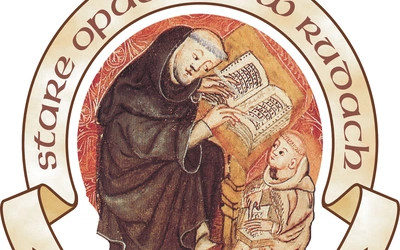 STARE OPAC W RUDACH